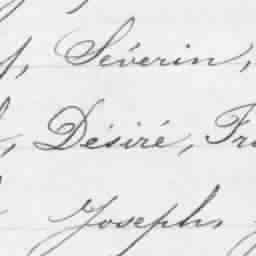 Séverin,
Désiré,
Joseph,